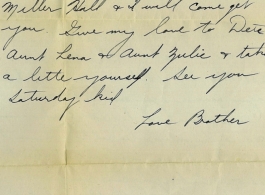 Miller Hall & I will come get
you. Give my love to Dete
Aunt Lena & Aunt Zulie & take
a little yourself. See you
Saturday kid
Love Brother